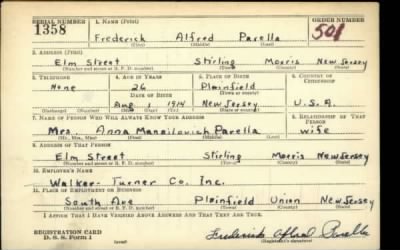 SERIAL NUMBER 1. NAME (Print) ORDER NUMBER
1358 Frederick Alfred Parella 501
(First) (Middle) (Last)
2. ADDRESS (Print)
Elm Street Stirling Morris New Jersey
(Number and street or R. F. D. number) (Town) (County) (State)
3. TELEPHONE 4. AGE IN YEARS 5. PLACE OF BIRTH 6. COUNTRY OF CITIZENSHIP
None 26 Plainfield
DATE OF BIRTH (Town or county)
Aug 1 1914 New Jersey U.S.A.
(Exchange) (Number) (Mo.) (Day) (Yr.) (State or country)
7. NAME OF PERSON WHO WILL ALWAYS KNOW YOUR ADDRESS 8. RELATIONSHIP OF THAT PERSON
Mrs. Anna Manailovich Parella wife
(Mr., Mrs., Miss) (First) (Middle) (Last)
9. ADDRESS OF THAT PERSON
Elm Street Stirling Morris New Jersey
(Number and street or R. F. D. number) (Town) (County) (State)
10. EMPLOYER'S NAME
Walker-Turner Co. Inc.
11. PLACE OF EMPLOYMENT OR BUSINESS
South Ave Plainfield Union New Jersey
(Number and street or R. F. D. number) (Town) (County) (State)
I AFFIRM THAT I HAVE VERIFIED ABOVE ANSWERS AND THAT THEY ARE TRUE.
REGISTRATION CARD
D. S. S. Form 1 Frederick Alfred Parella
(over) (Registrant's signature)